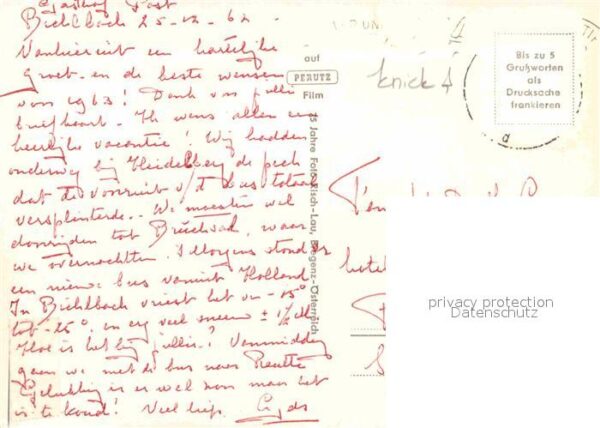 Gasthof Post
Bichlbach 25-12-62
Vanhieruit een hartelijke
groet en de beste wensen
voor 1963! Dank voor jullie
briefkaart. Ik wens allen een
heerlijke vacantie! Wij hadden
onderweg bij Heidelberg de pech
dat de voorruit v/d bus totaal
versplinterde. We moesten wel
doorrijden tot Bruchsal, waar
we overnachtten. 's Morgens stond er
een nieuwe bus vanuit Holland
In Bichlbach vriest het van -15°
tot -25° en erg veel sneeuw ± 1½ M
Hoe is het bij jullie? Vanmiddag
gaan we met de bus naar Reutte
Gelukkig is er wel zon maar het
is te koud! Veel liefs
auf
PERUTZ
Film
75 Jahre Foto Risch-Lau, Bregenz-Österreich
knick
Bis zu 5
Grußworten
als
Drucksache
frankieren
privacy protection
Datenschutz